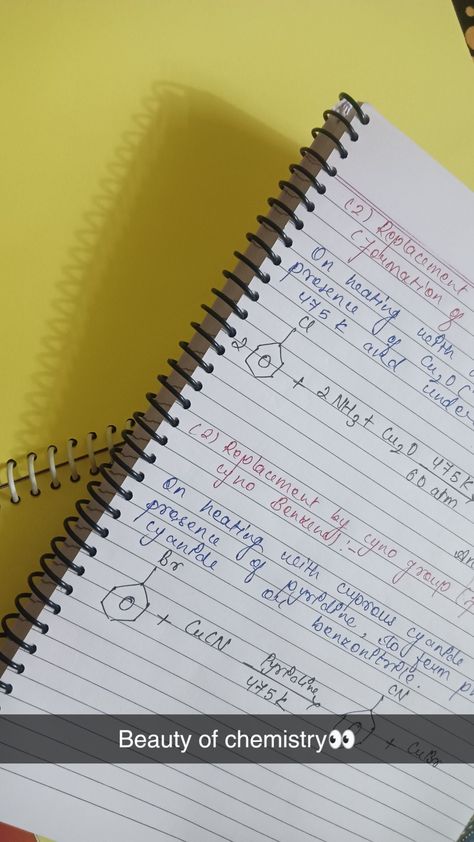 (2) Replacement
(formation of
On heating with
presence of Cu2O (
475 K and under
Cl
2 + 2 NH3 + Cu2O 475 K
60 atm
(2) Replacement by cyno group (
cyno Benzene) :-
On heating with cuprous cyanide
presence of pyridine, to form p
cyanide or benzonitrile.
Br
+ CuCN Pyridine
475K
CN
+ CuBr
Beauty of chemistry👀